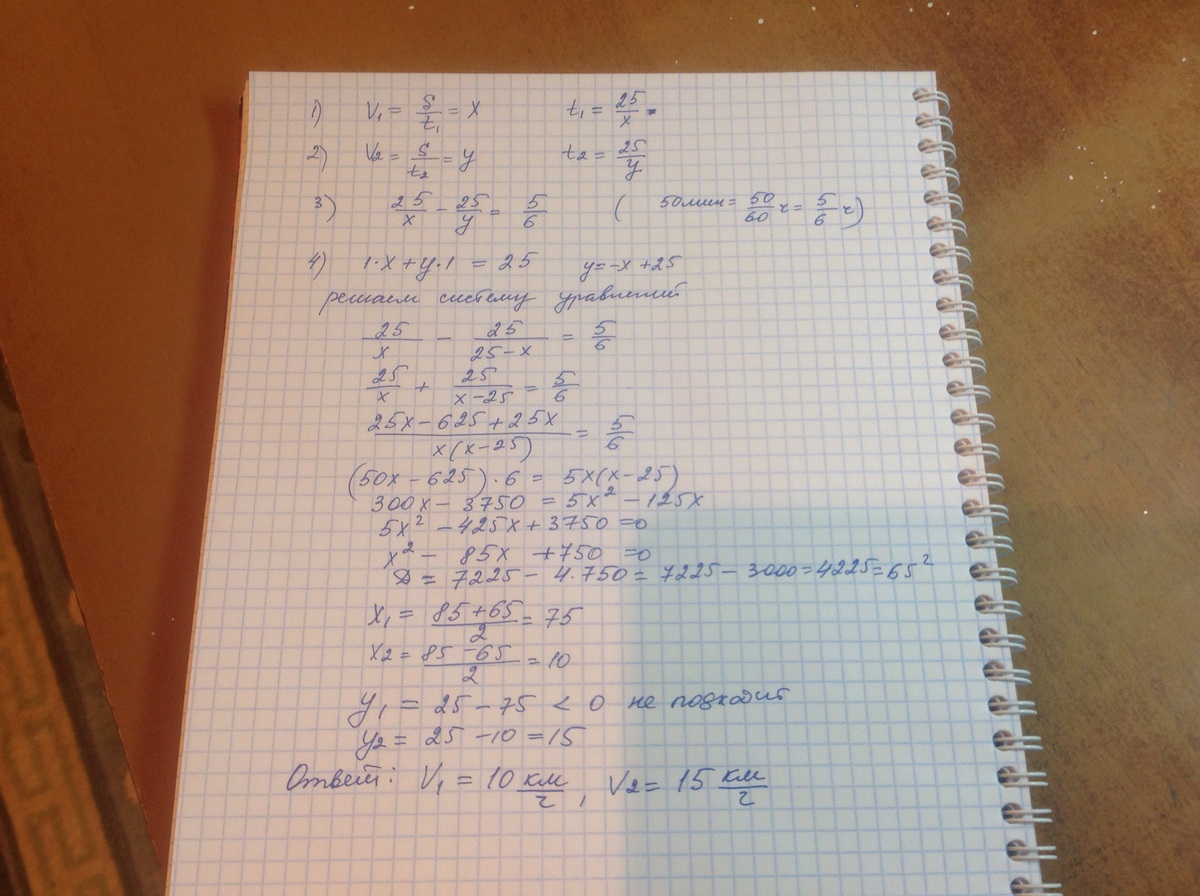 1) V₁ = S/t₁ = x t₁ = 25/x
2) V₂ = S/t₂ = y t₂ = 25/y
3) 25/x − 25/y = 5/6 ( 50мин = 50/60 ч = 5/6 ч)
4) 1·x + y·1 = 25 y = −x + 25
решаем систему уравнений
25/x − 25/(25−x) = 5/6
25/x + 25/(x−25) = 5/6
(25x − 625 + 25x)/(x(x−25)) = 5/6
(50x − 625)·6 = 5x(x−25)
300x − 3750 = 5x² − 125x
5x² − 425x + 3750 = 0
x² − 85x + 750 = 0
D = 7225 − 4.750 = 7225 − 3000 = 4225 = 65²
x₁ = (85+65)/2 = 75
x₂ = (85−65)/2 = 10
y₁ = 25 − 75 < 0 не подходит
y₂ = 25 − 10 = 15
Ответ: V₁ = 10 км/ч, V₂ = 15 км/ч